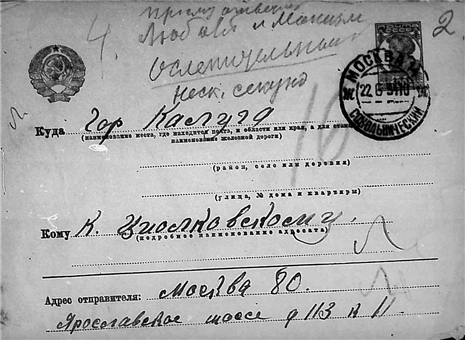 4.
Любовь и
ослепительный
неск. секунд
2
ПОЧТА
СССР
МОСКВА
СОКОЛЬНИЧЕСКИЙ
Куда Гор Калуга
(наименование места, где находится почта, и области или края, а для станций
наименование железной дороги)
16
(район, село или деревня)
(улица, № дома и квартиры)
Кому К. Циолковскому.
(подробное наименование адресата)
Адрес отправителя: Москва 80.
Ярославское шоссе д 113 к 11